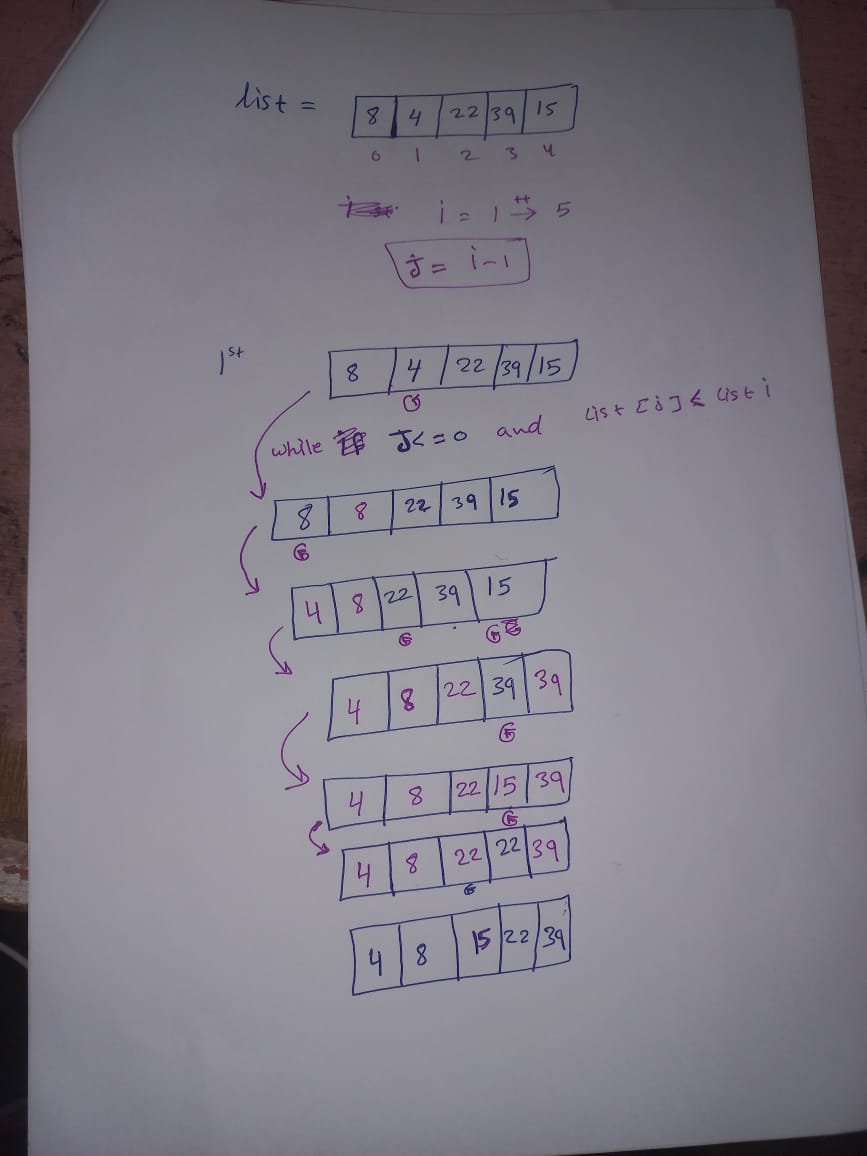 list = 8 4 22 39 15
0 1 2 3 4
i = 1 ++→ 5
J = i-1
1st 8 4 22 39 15
while J<=0 and List [j] ≤ List i
8 8 22 39 15
4 8 22 39 15
4 8 22 39 39
4 8 22 15 39
4 8 22 22 39
4 8 15 22 39